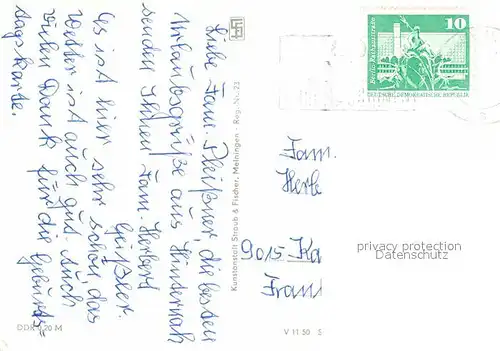 Liebe Fam. Pleißner, die besten
Urlaubsgrüße aus Hinternah
senden Ihnen Fam. Herbert
Geißler.
Es ist hier sehr schön, das
Wetter ist auch gut. Auch
vielen Dank für die Geburts=
tagskarte.
DDR 0,20 M
Kunstanstalt Straub & Fischer, Meiningen Reg.-Nr. 23
V 11 50 S
10
Berlin, Rathausstraße
DEUTSCHE DEMOKRATISCHE REPUBLIK
Fam.
Herbe
9015 Ka
Fran
privacy protection
Datenschutz